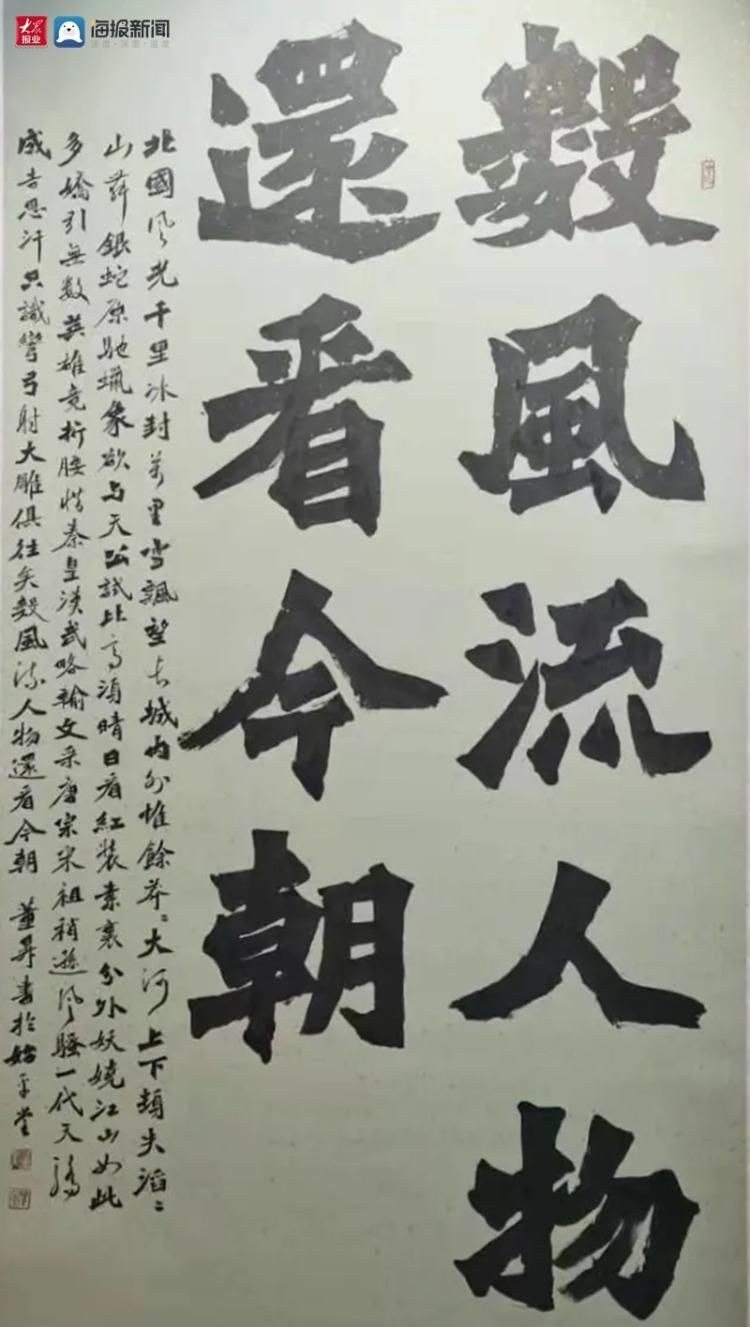 大众报业
海报新闻
速度·深度·温度
數風流人物
還看今朝
北國風光千里冰封萬里雪飄望長城內外惟餘莽〻大河上下頓失滔〻
山舞銀蛇原馳蠟象欲与天公試比高須晴日看紅裝素裹分外妖嬈江山如此
多嬌引無數英雄竞折腰惜秦皇漢武略輸文采唐宗宋祖稍遜風騷一代天驕
成吉思汗只識彎弓射大雕俱往矣數風流人物還看今朝 董昇書於始平堂